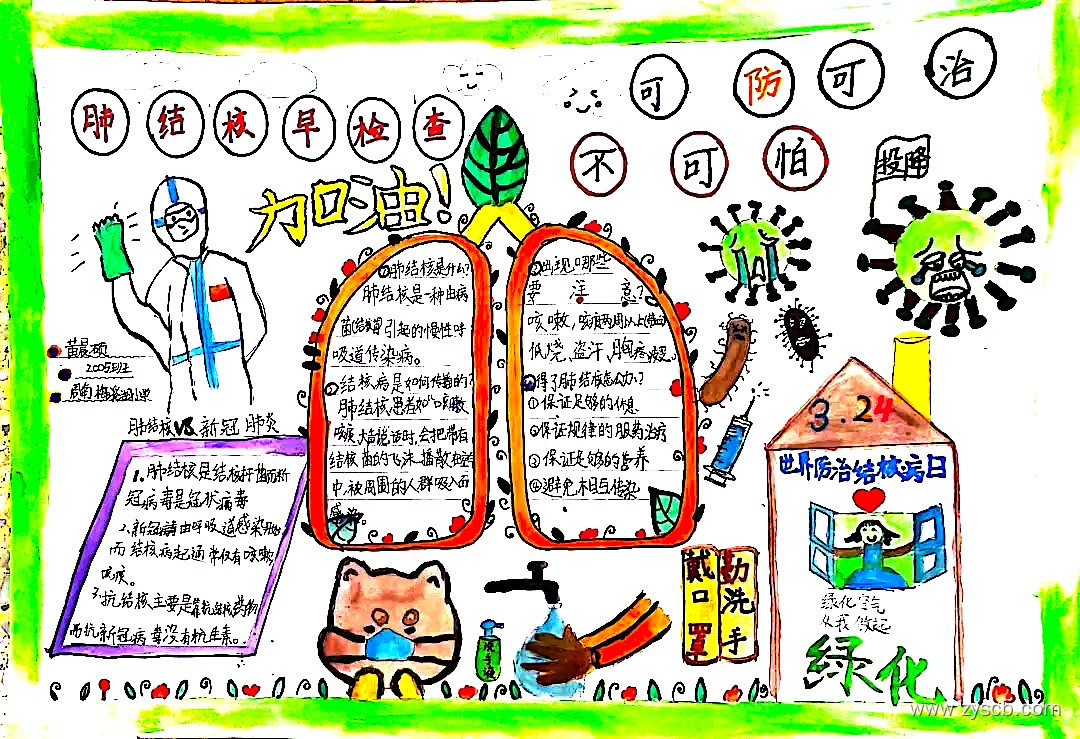 肺结核早检查
可防可治
不可怕
投降
加油!
①肺结核是什么?
肺结核是一种由病
菌(结核菌)引起的慢性呼
吸道传染病。
②结核病是如何传播的?
肺结核患者如咳嗽
咳痰、大声说话时,会把带有
结核菌的飞沫播散
中,被周围的人群吸入而
感染。
①出现哪些
要注意?
咳嗽,咳痰两周以上
低烧、盗汗、胸疼
得了肺结核怎么办?
①保证足够的休息
②保证规律的服药治疗
③保证足够的营养
④避免相互传染
黄晨硕
2005班
肺结核VS新冠肺炎
1.肺结核是结核杆菌而新
冠病毒是冠状病毒
2.新冠病由呼吸道感染开始
而结核病起通常仅有咳嗽,
咳痰。
3.抗结核主要是靠抗结核药物
而抗新冠病毒没有抗生素。
3.24
世界防治结核病日
绿化空气
从我做起
绿化
勤洗手
戴口罩
洗手液
www.zyscb.com